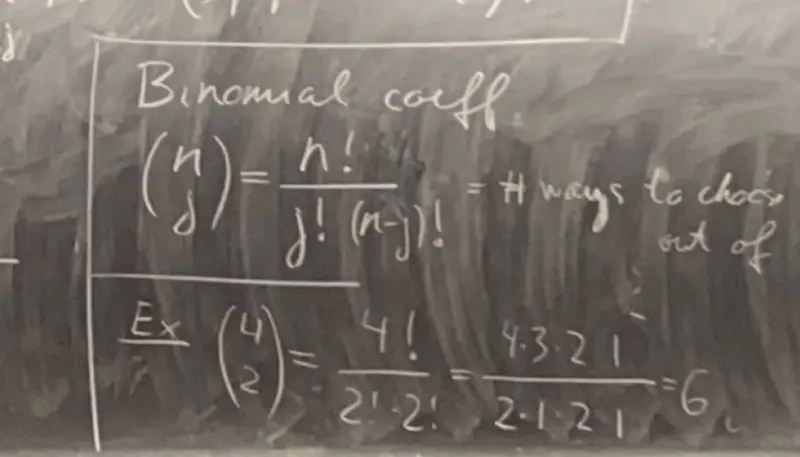 Binomial coeff.
(n j) = n! / j! (n-j)! = # ways to choos
out of
Ex (4 2) = 4! / 2!·2! = 4·3·2 1 / 2·1·2·1 = 6